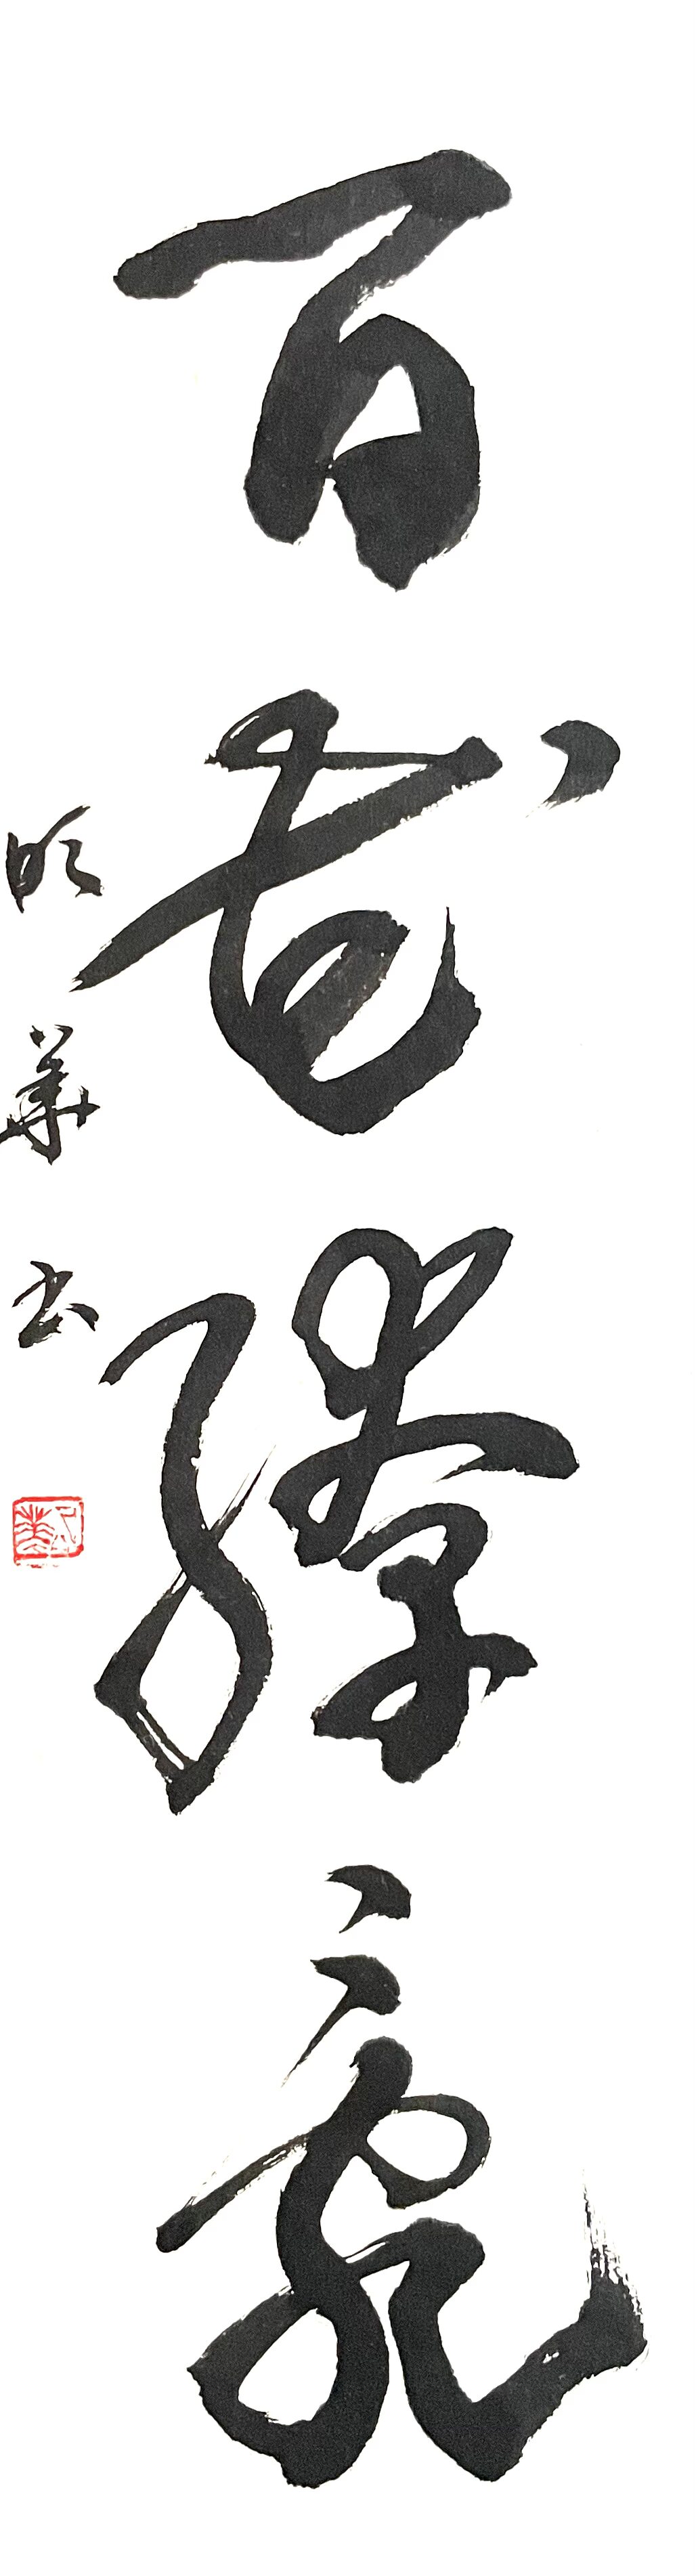 百花繚亂
明華書